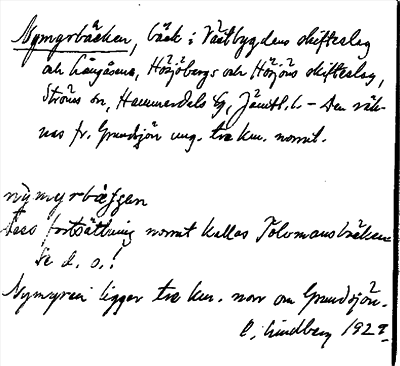 Nymyrbäcken, bäck i Västbygdens skifteslag
och Långåsens, Höjöbergs och Höjöns skifteslag,
Ströms sn, Hammerdals tg, Jämtl. l. – Den räk-
nas fr. Grundsjön ung. tre km. norrut.
nỳmyrbæ̀kʃen
Dess fortsättning norrut kallas Tolvmansbäcken
Se d. o.!
Nymyren ligger tre km. norr om Grundsjön.
C. Lindberg 1929.